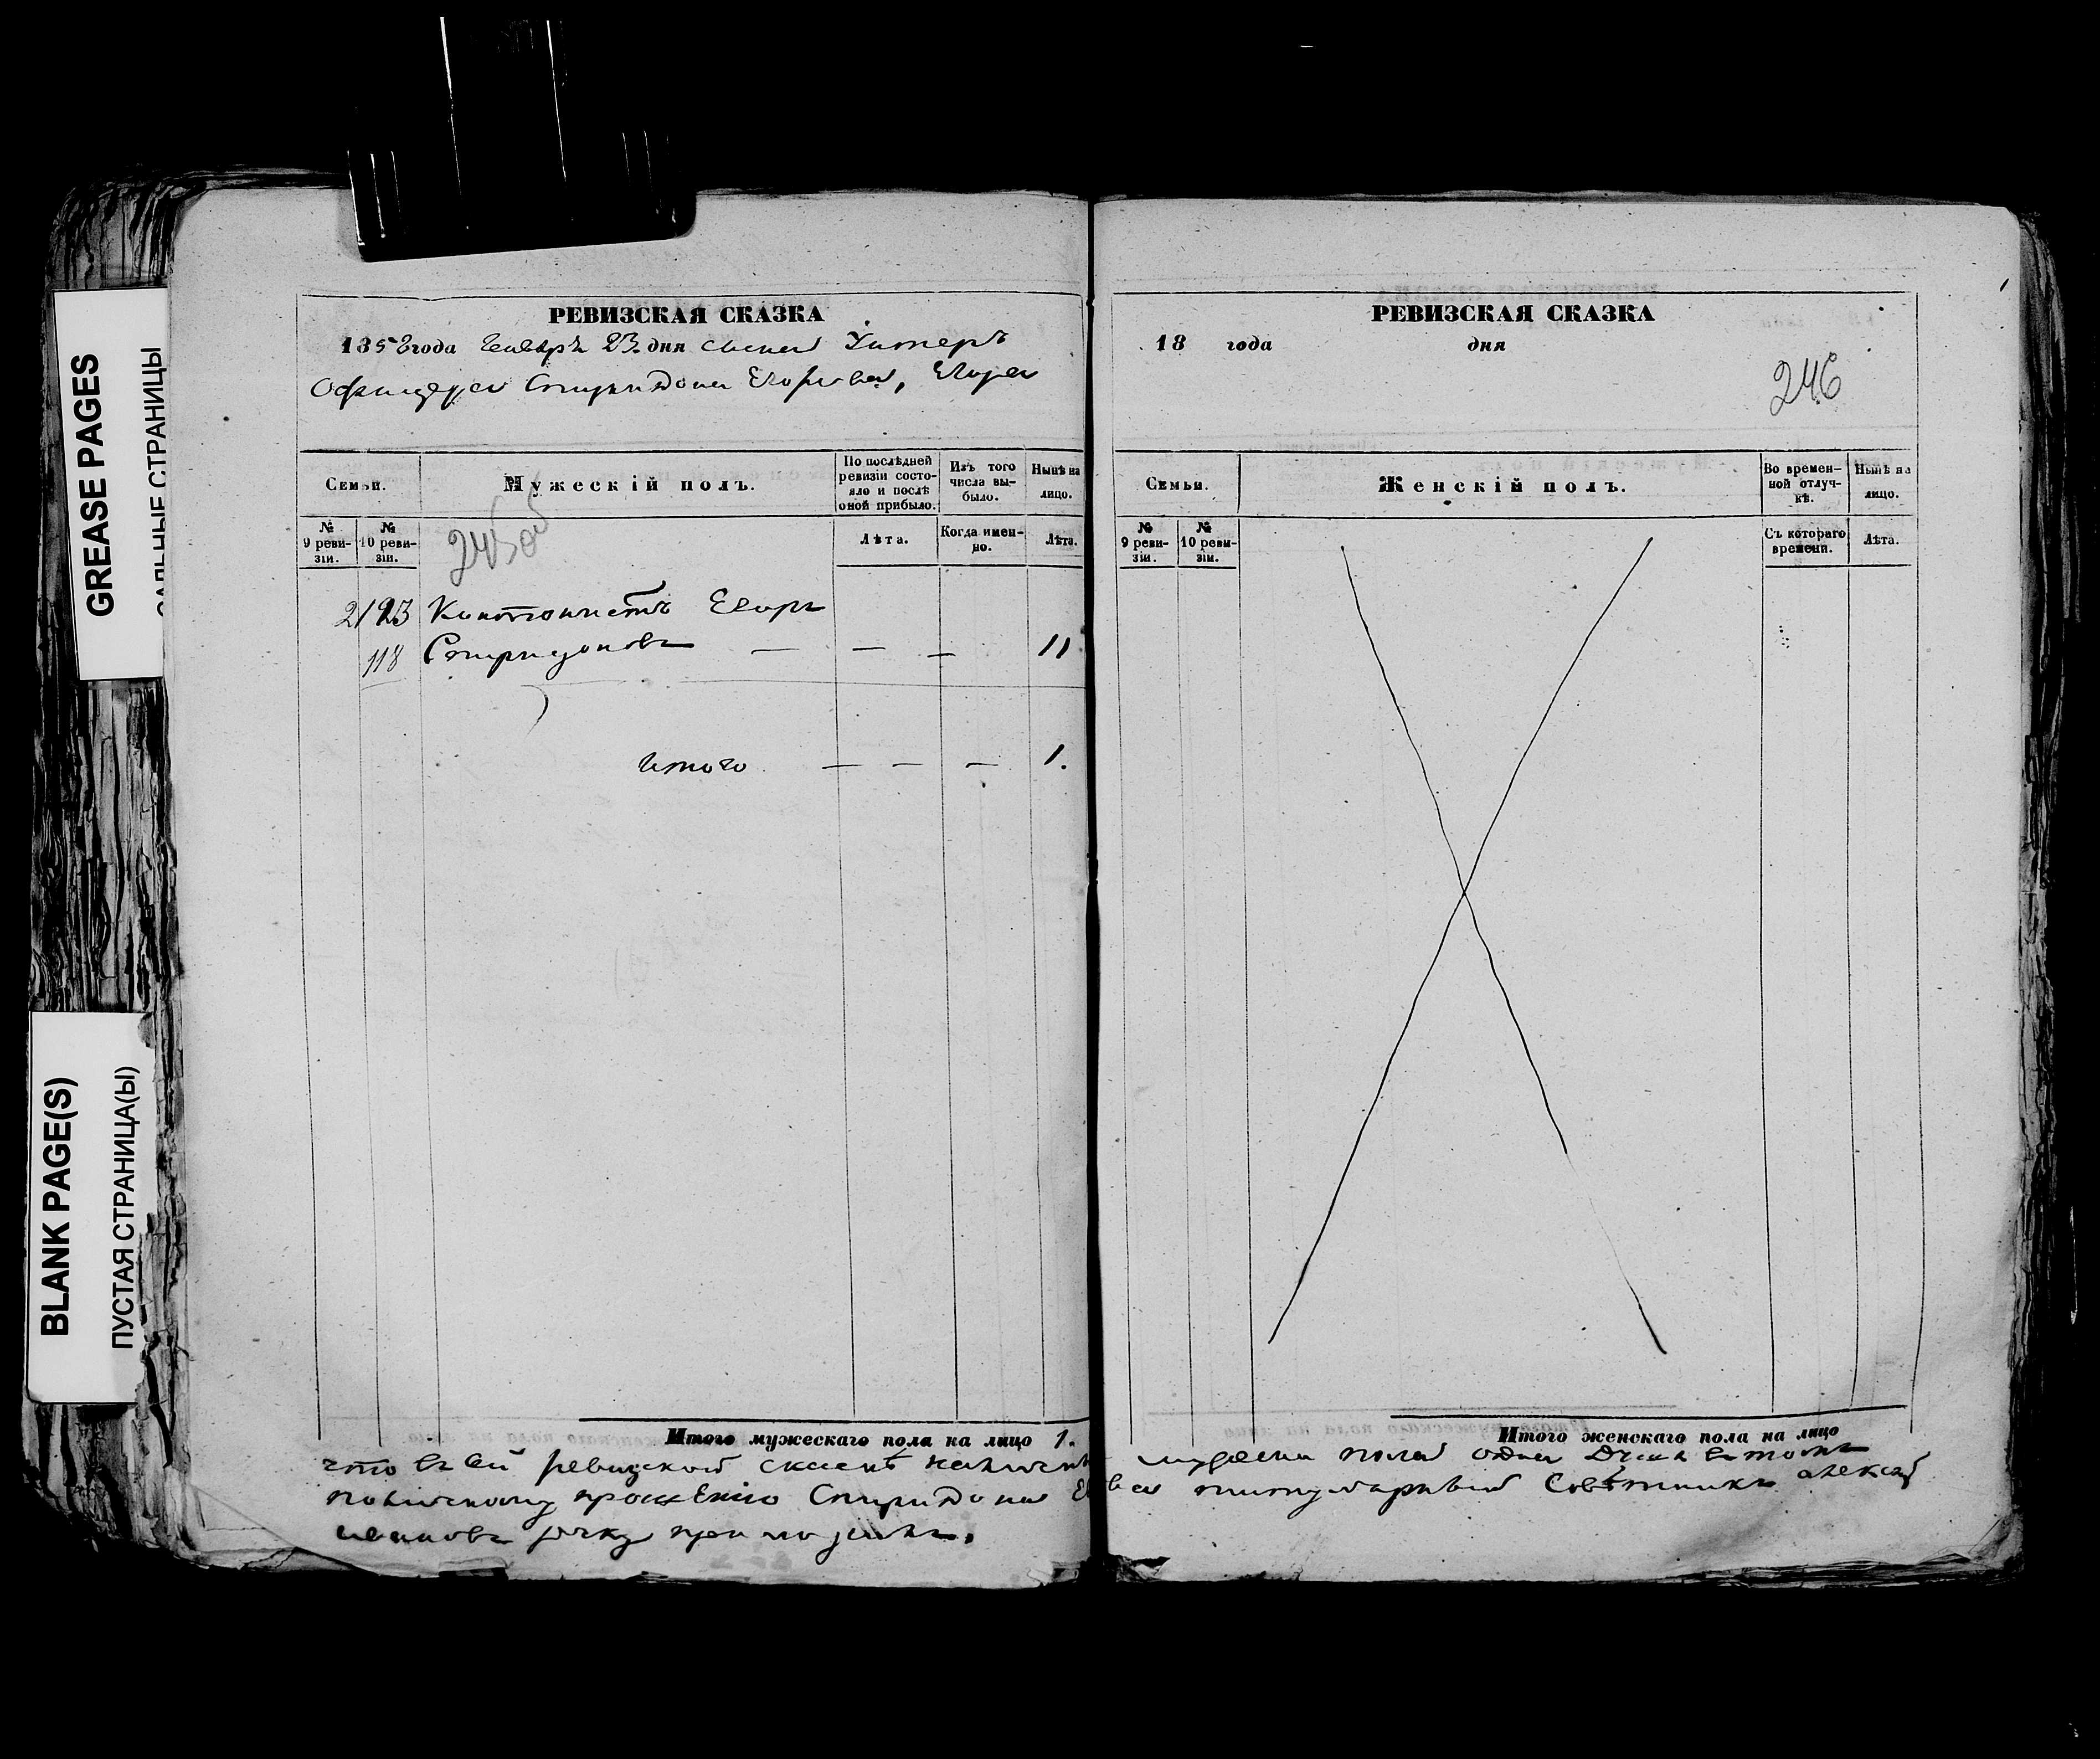 GREASE PAGES
САЛЬНЫЕ СТРАНИЦЫ
BLANK PAGE(S)
ПУСТАЯ СТРАНИЦА(Ы)
РЕВИЗСКАЯ СКАЗКА
1858 года Генваря 23. дня сына Унтеръ
Офицера Спиридона Егорова, Егора
Семьи.
Мужескій полъ.
По послѣдней ревизіи состояло и послѣ оной прибыло.
Изъ того числа выбыло.
Нынѣ на лицо.
№ 9 ревизіи.
№ 10 ревизіи.
Лѣта.
Когда именно.
Лѣта.
245об
Кантонистъ Егоръ
118 Спиридоновъ — — — 11
Итого — — — 1.
Итого мужескаго пола на лицо 1.
РЕВИЗСКАЯ СКАЗКА
18 года дня
246
Семьи.
Женскій полъ.
Во временной отлучкѣ.
Нынѣ на лицо.
№ 9 ревизіи.
№ 10 ревизіи.
Съ котораго времени.
Лѣта.
Итого женскаго пола на лицо
что въ сей ревизской сказкѣ мужеска пола одна душа въ томъ
прошенію Спиридона титулярный Совѣтникъ Алексѣй
Ивановъ руку приложилъ.